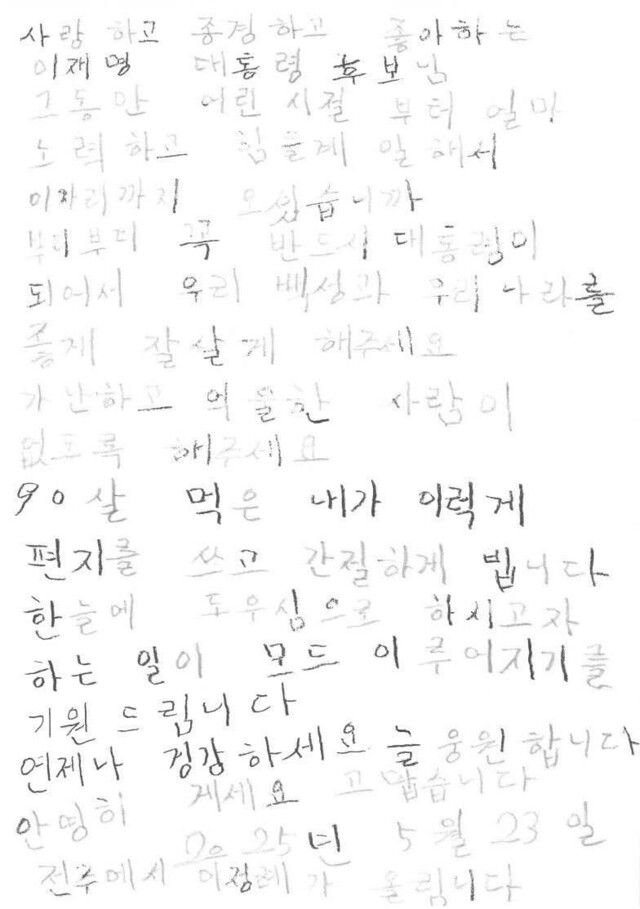 사랑 하고 존경하고 좋아하는
이재명 대통령 후보님
그동안 어린 시절 부터 얼마
노력하고 힘들게 일 해서
이자리까지 오았습니까
부디부디 꼭 반드시 대통령이
되어서 우리 백성과 우리 나라를
좋게 잘살게 해주세요
가난하고 억울한 사람이
없도록 해주세요
90살 먹은 내가 이렇게
편지를 쓰고 간절하게 빕니다
한늘에 도우심으로 하시고자
하는 일이 모드 이루어지기를
기원 드립니다
언제나 겅강하세요 늘 웅원합니다
안영히 게세요 고맙습니다
2025년 5월 23일
전주에서 이정례가 올립니다